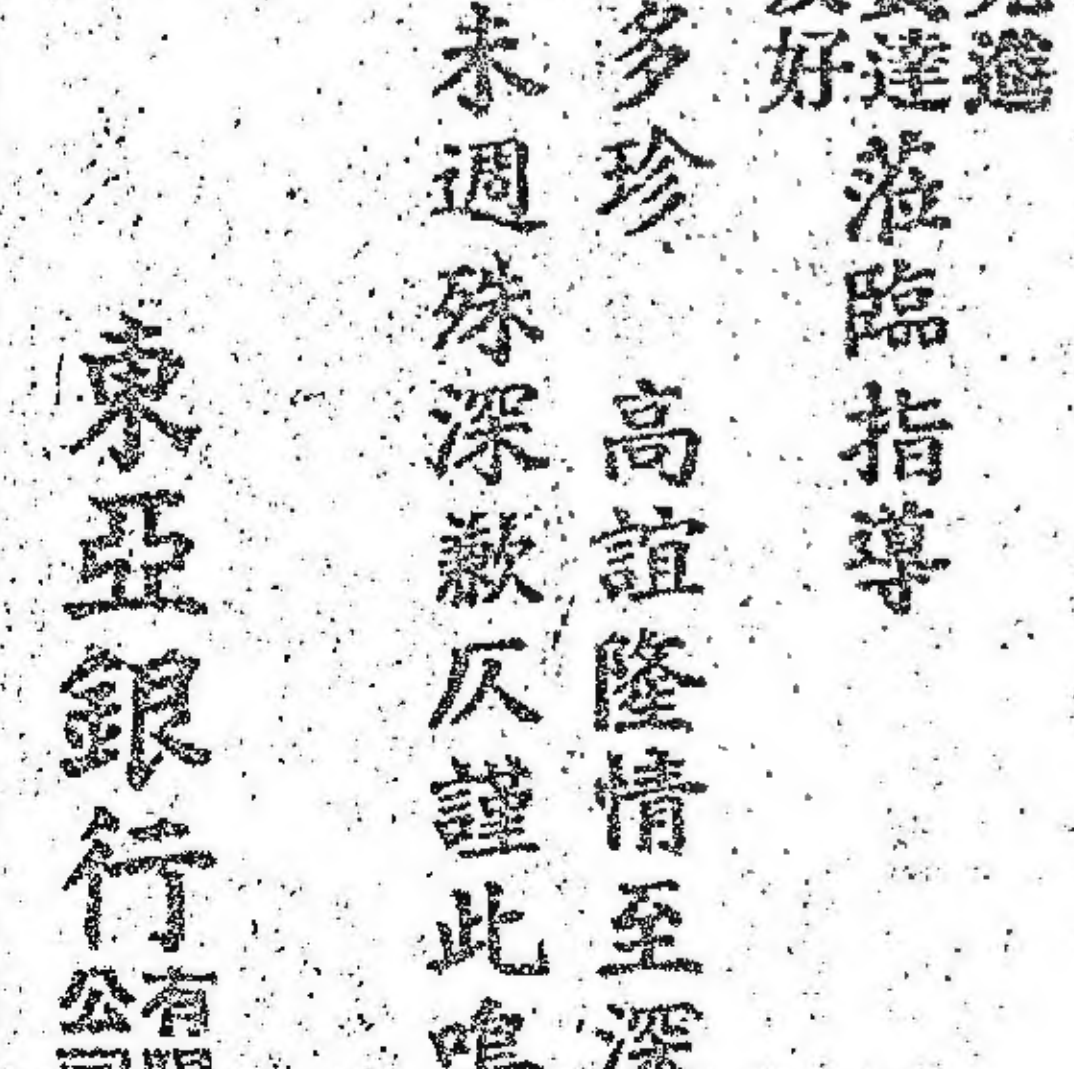 達
好
蒞臨指導
多珍 高誼隆情至深
未週殊深歉仄謹此鳴
東亞銀行有限公司